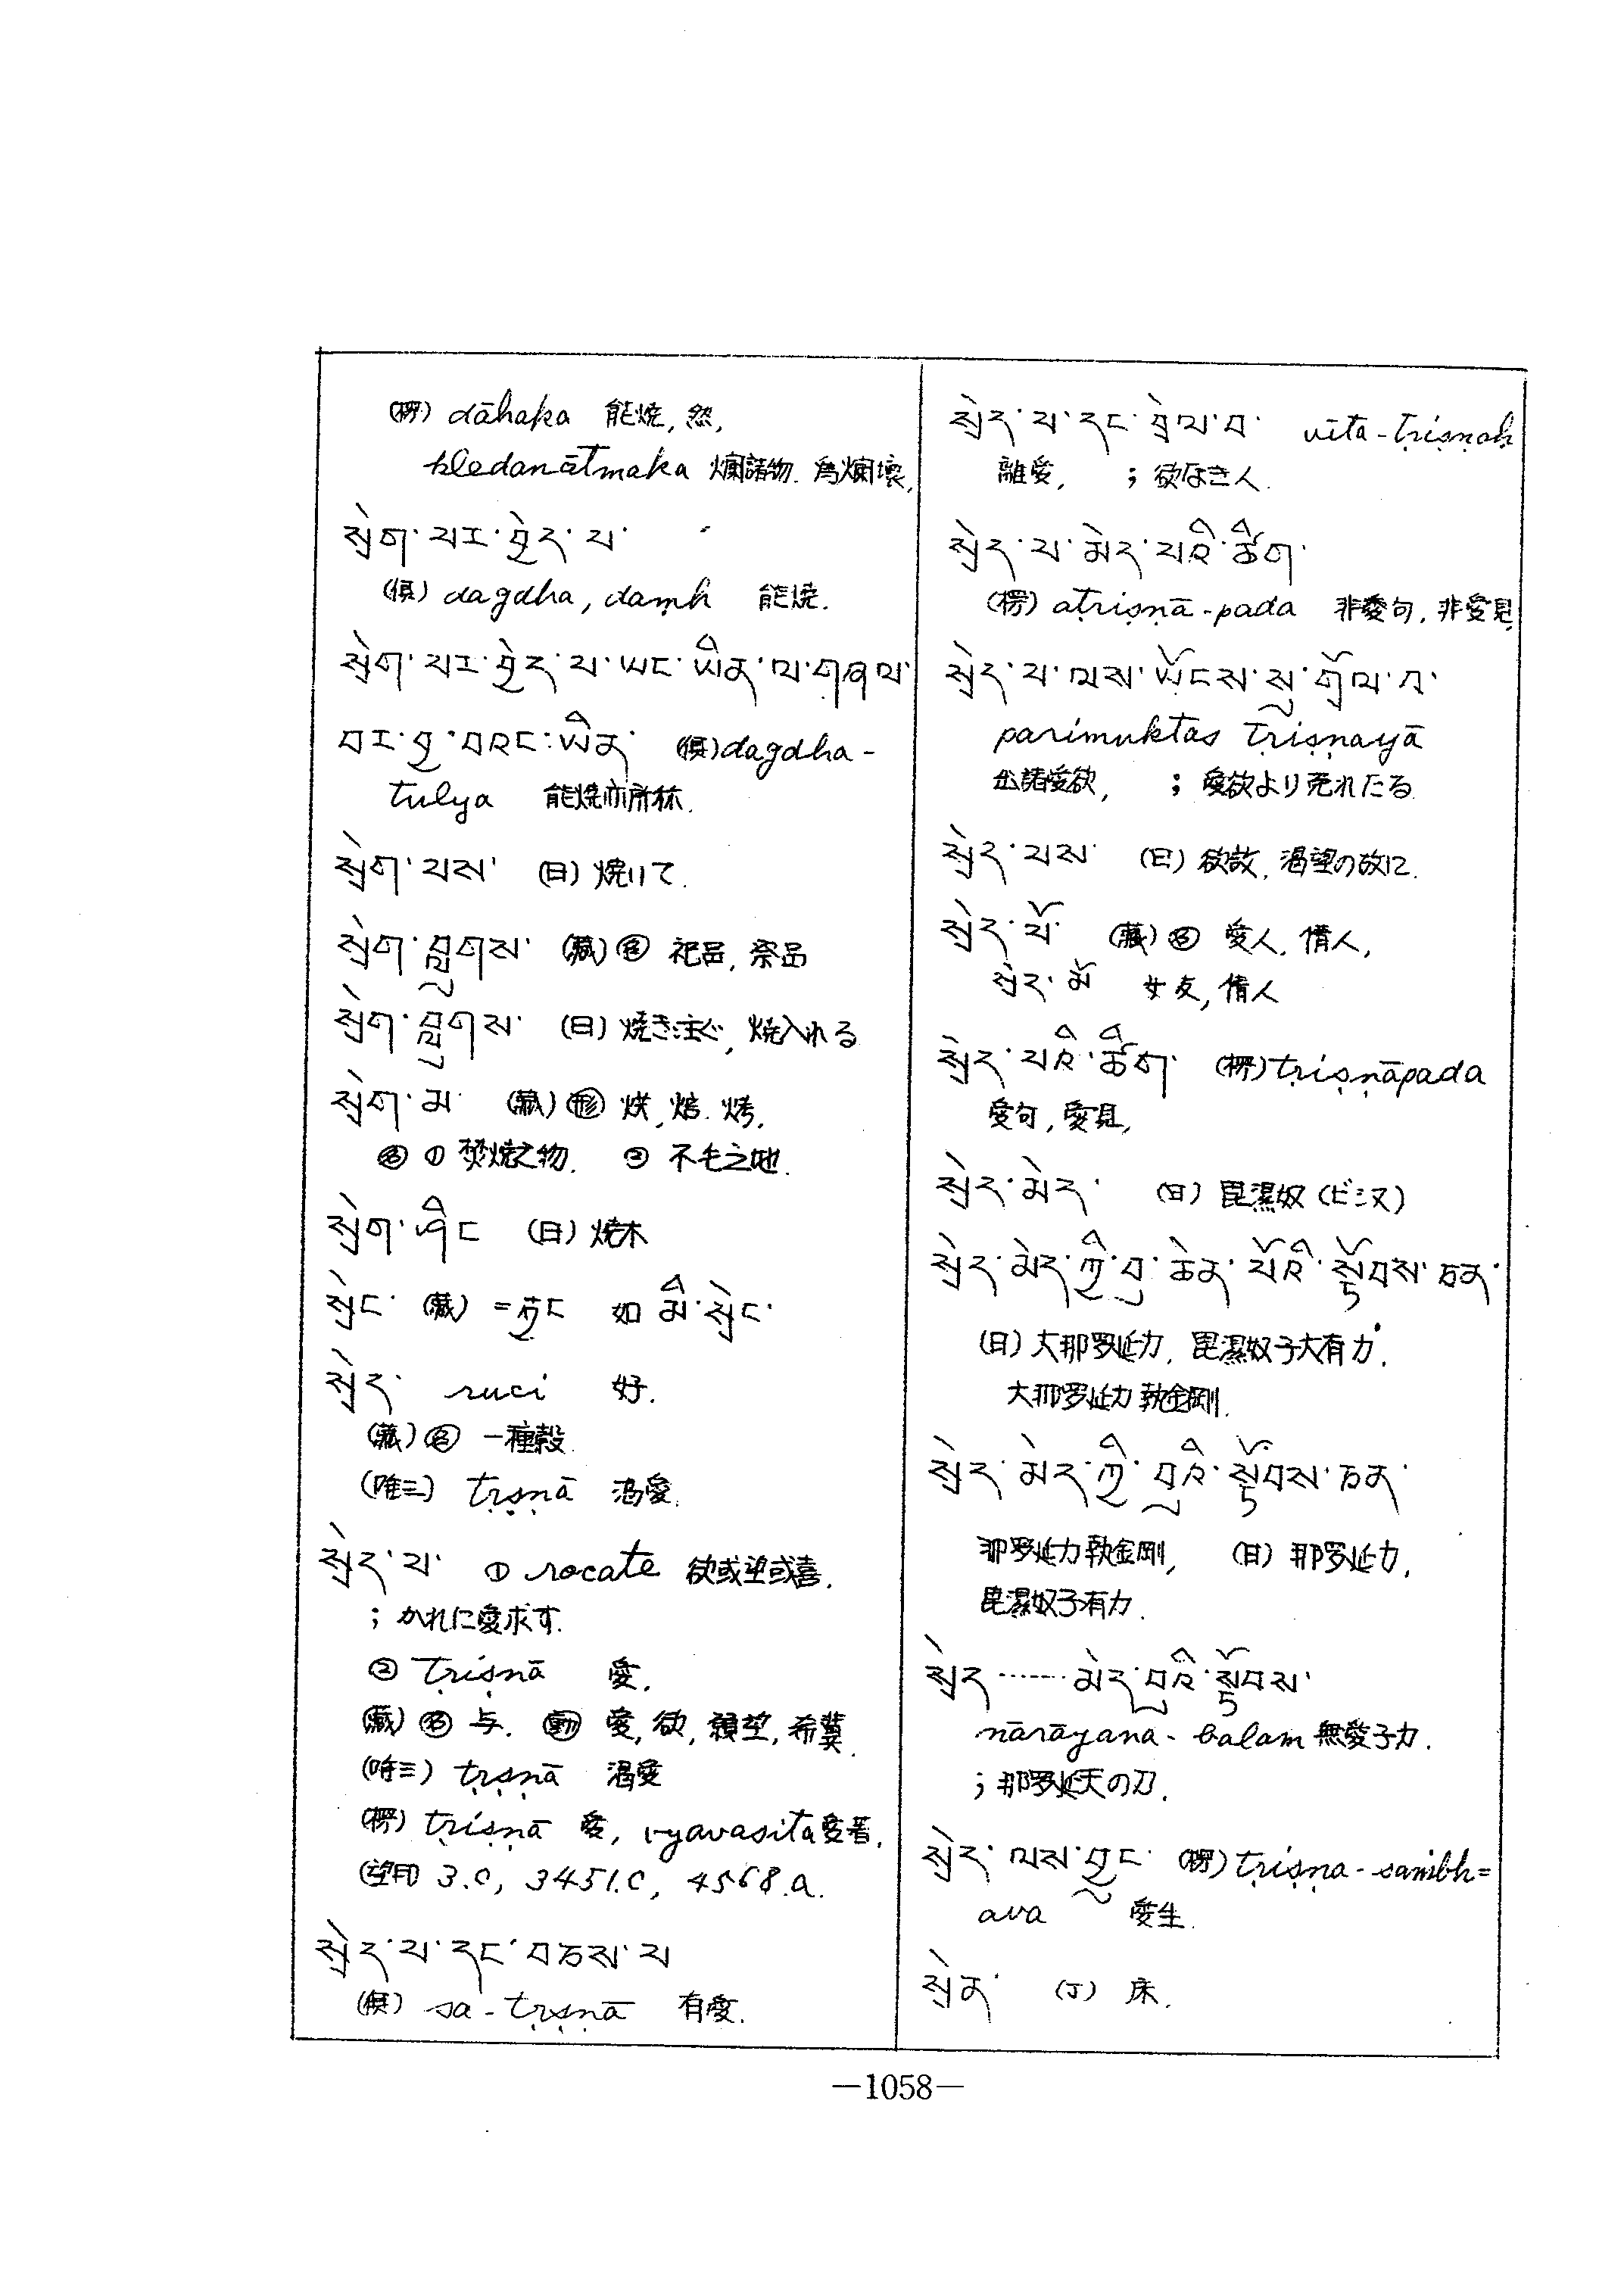 (楞) dāhaka 能燒, 然,
kledanātmaka 爛諸物. 為爛壞,
སྲེག་པར་བྱེད་པ་
(俱) dagdha, daṃh 能燒.
སྲེག་པར་བྱེད་པ་ཡང་ཡིན་ལ་གཞལ་
བར་བྱ་བའང་ཡིན་ (俱) dagdha-
tulya 能燒亦所
སྲེག་པས་ (日) 焼いて.
སྲེག་བླུགས་ (藏) 名 祀品, 祭品
སྲེག་བླུགས་ (日) 焼き注ぐ, 焼入れる
སྲེག་མ་ (藏) 形 烘, 焙. 烤,
名 ① 焚燒之物. ② 不毛之地.
སྲེག་ཤིང (日) 焼木
སྲེང་ (藏) = ཀྲེང 如 མི་སྲེང་
སྲེད་ ruci 好.
(藏) 名 一種穀.
(唯三) tṛṣṇā 渴愛.
སྲེད་པ་ ① rocate 欲或望或喜.
; かれに愛求す.
② ṭriṣṇā 愛.
(藏) 名 与. 動 愛, 欲, 願望, 希冀.
(唯三) tṛṣṇā 渴愛
(楞) ṭriṣṇā 愛, vyavasita 愛著.
(望月 3.c, 3451.c, 4568.a.
སྲེད་པ་དང་བཅས་པ
(俱) sa-tṛṣṇā 有愛.
སྲེད་པ་དང་བྲེལ་བ་ vīta-ṭriṣṇaḥ
離愛, ; 欲なき人.
སྲེད་པ་མེད་པའི་ཚིག་
(楞) aṭriṣṇā-pada 非愛句, 非愛見,
སྲེད་པ་ལས་ཡོངས་སུ་གྲོལ་བ་
parimuktas ṭriṣṇayā
出諸愛欲, ; 愛欲より売れたる
སྲེད་པས་ (日) 欲故, 渇望の故に.
སྲེད་པོ་ (藏) 名 愛人, 情人,
སྲེད་མོ 女友, 情人
སྲེད་པའི་ཚིག་ (楞) ṭriṣṇāpada
愛句, 愛見,
སྲེད་མེད་ (日) 毘濕奴 (ビシヌ)
སྲེད་མེད་ཀྱི་བུ་ཆེན་པོའི་སྟོབས་ཅན་
(日) 大那罗延力, 毘濕奴子大有力,
大那罗延力執金剛.
སྲེད་མེད་ཀྱི་བུའི་སྟོབས་ཅན་
那罗延力執金剛, (日) 那罗延力,
毘濕奴子有力.
སྲེད ······ མེད་བུའི་སྟོབས་
nārāyana-balam 無愛子力.
; 那罗延天の力.
སྲེད་ལས་བྱུང་ (楞) ṭriṣṇa-saṁbh=
ava 愛生.
སྲེན་ (J) 床.
—1058—